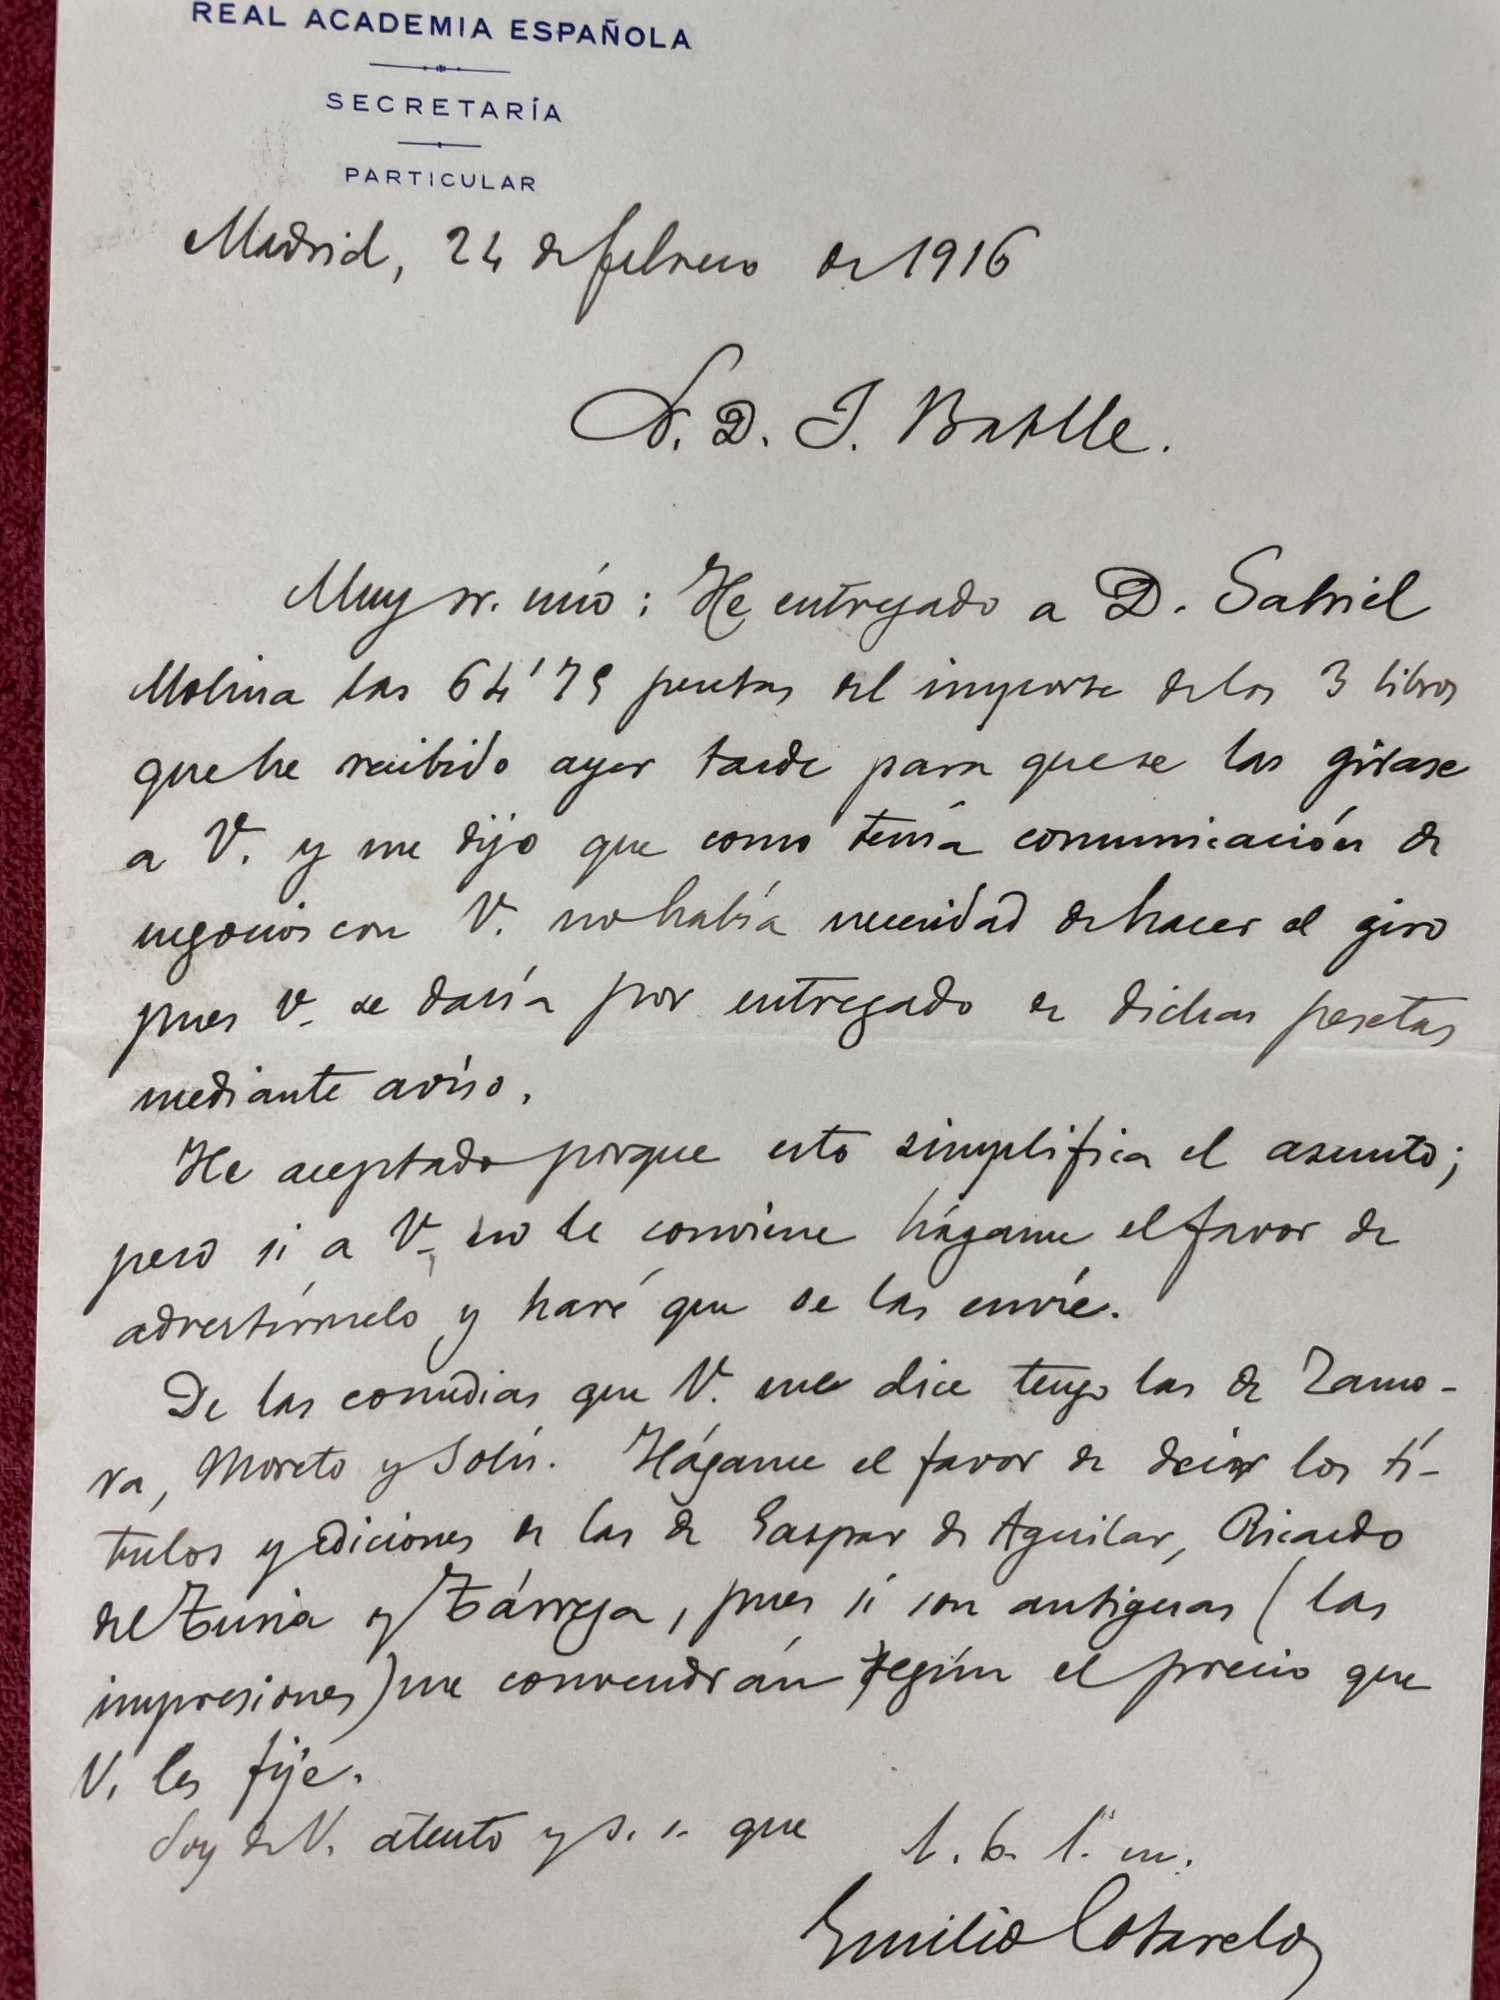 REAL ACADEMIA ESPAÑOLA
SECRETARÍA
PARTICULAR
Madrid, 24 de febrero de 1916
S. D. J. Batlle.
Muy sr. mío: He entregado a D. Gabriel
Molina las 64'75 pesetas del importe de los 3 libros
que he recibido ayer tarde para que se las girase
a V. y me dijo que como tenía comunicación de
negocios con V. no había necesidad de hacer el giro
pues V. se daría por entregado de dichas pesetas
mediante aviso.
He aceptado porque esto simplifica el asunto;
pero si a V. no le conviene hágame el favor de
advertírmelo y haré que se las envíe.
De las comedias que V. me dice tengo las de Zamo-
ra, Moreto y Solís. Hágame el favor de decir los tí-
tulos y ediciones de las de Gaspar de Aguilar, Ricardo
del Turia y Tárrega, pues si son antiguas (las
impresiones) me convendrán según el precio que
V. les fije.
Soy de V. atento y s. s. que l. b. l. m.
Emilio Cotarelo